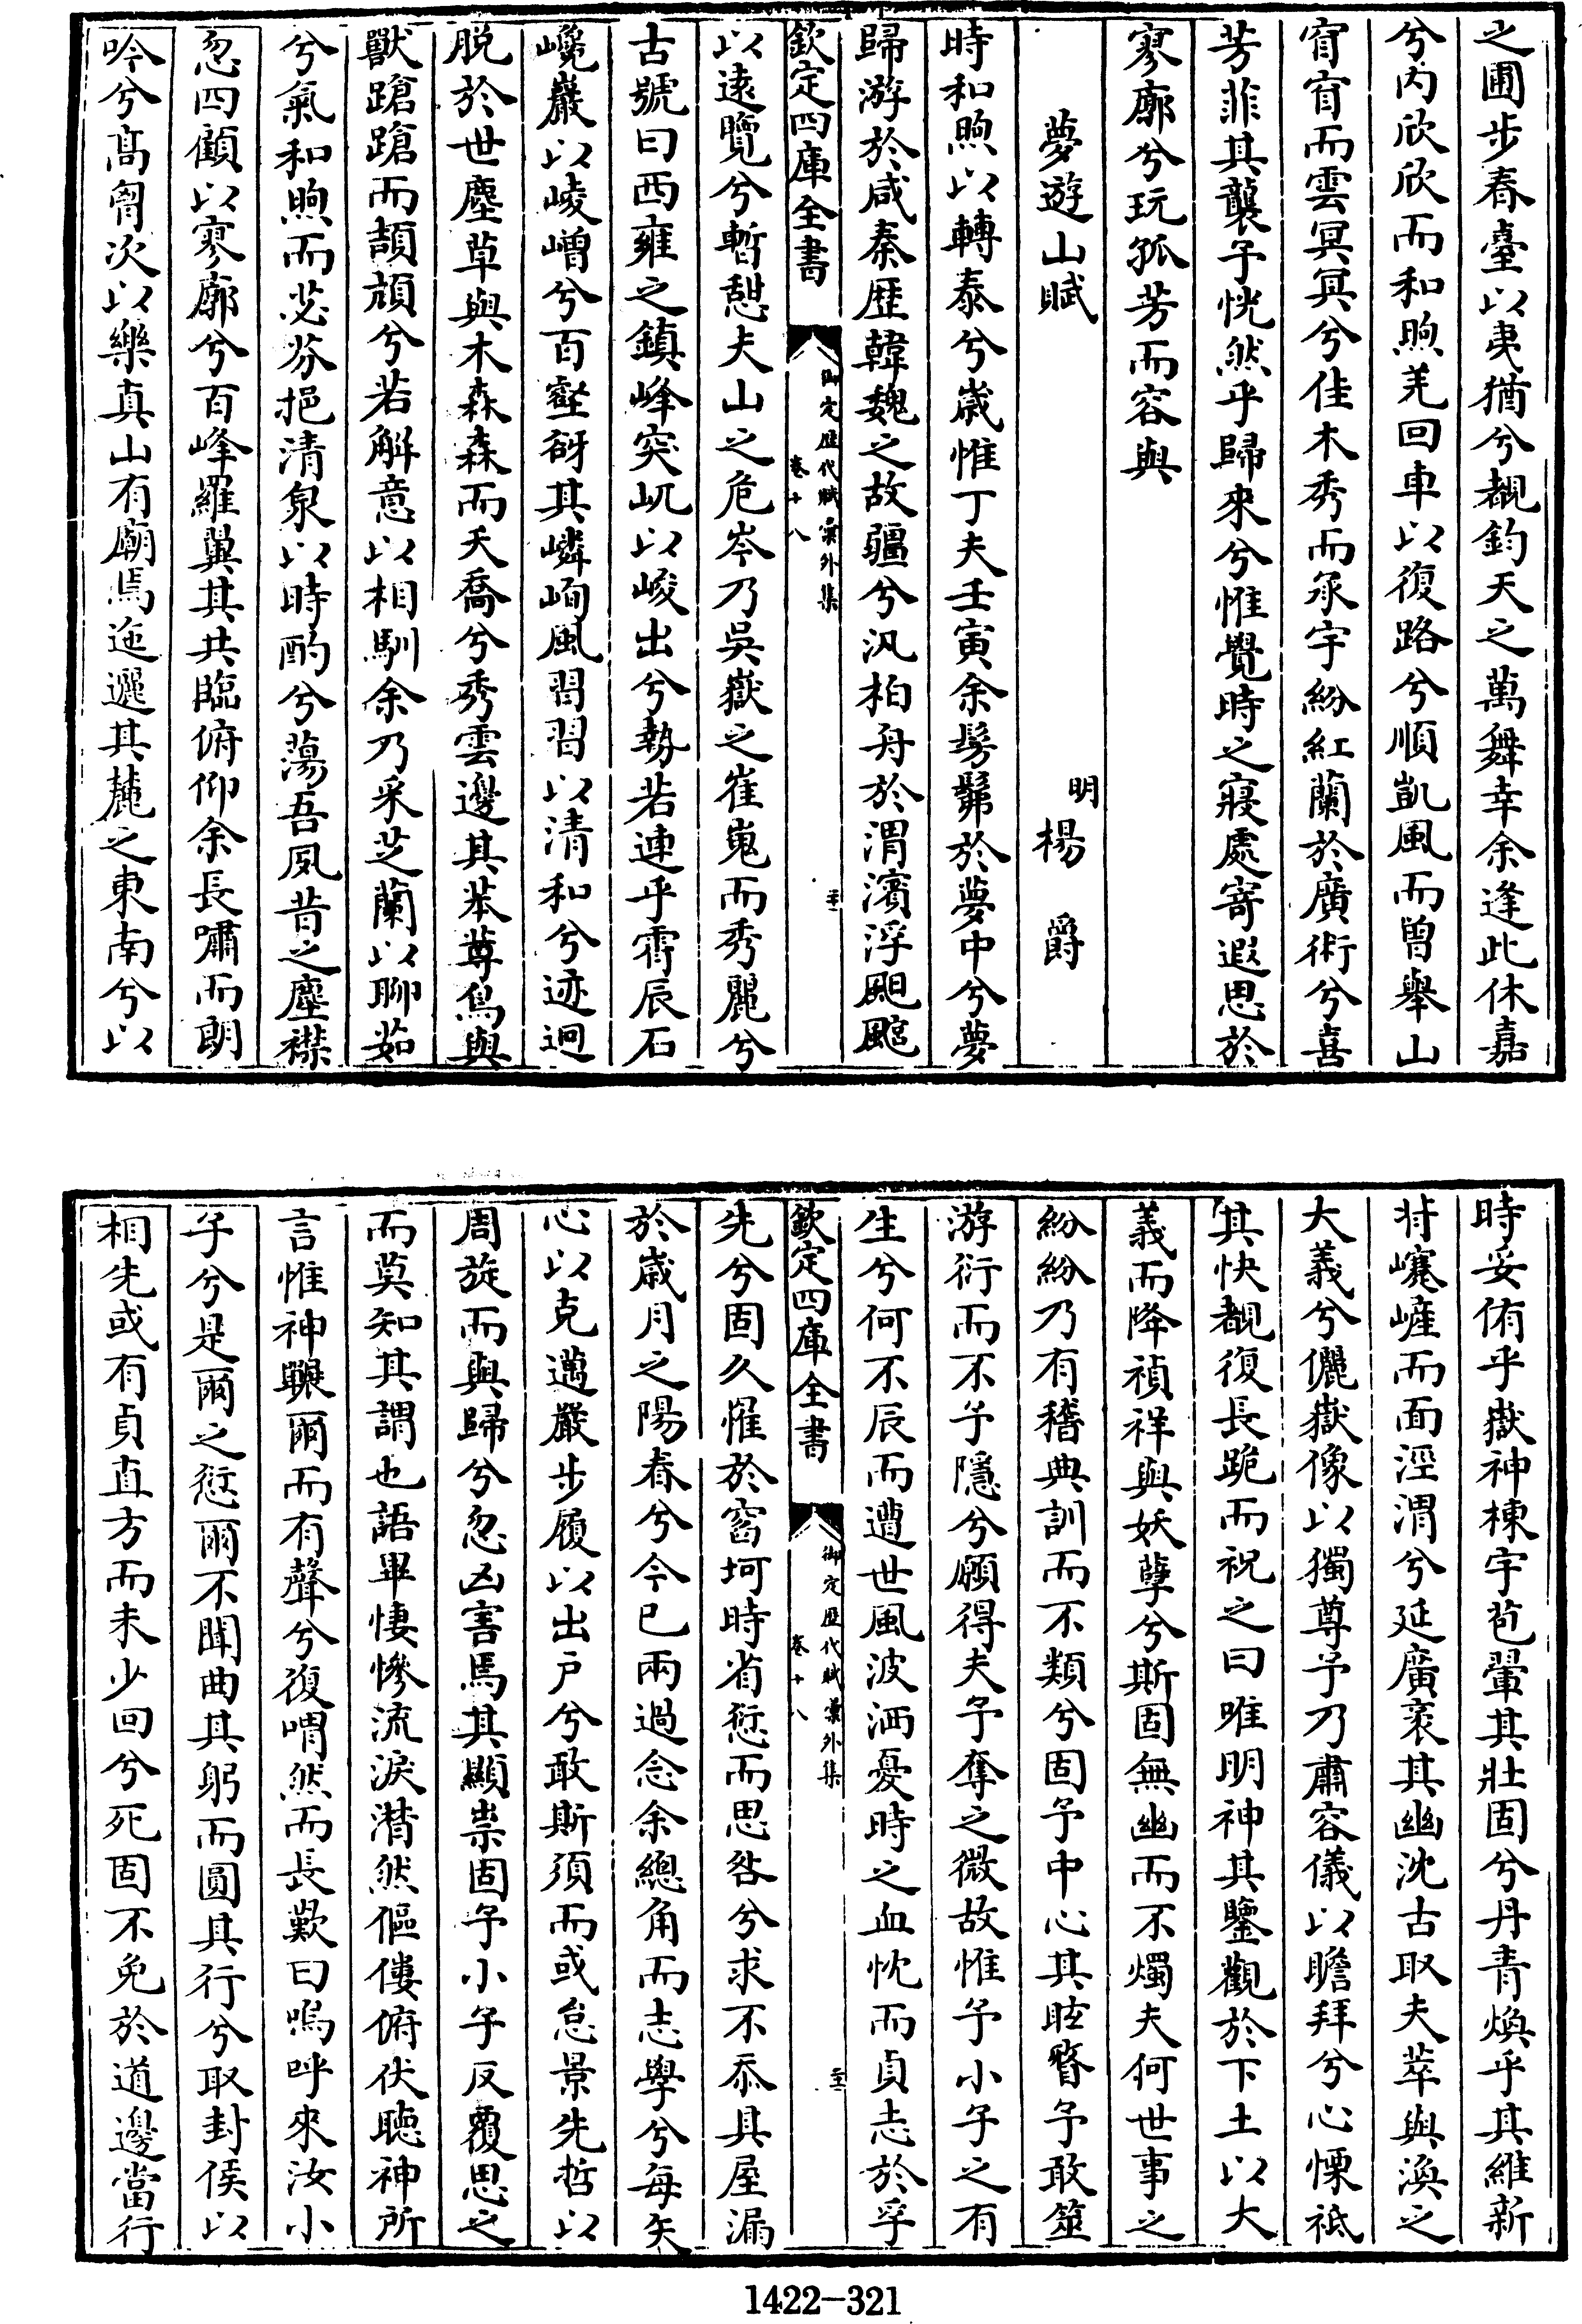 之圃步春臺以夷猶兮覩鈞天之萬舞幸余逢此休嘉
兮内欣欣而和煦羌回車以復路兮順凱風而曾舉山
窅窅而雲冥冥兮佳木秀而承宇紛紅蘭於廣術兮喜
芳菲其襲予恍然乎歸來兮惟覺時之寢處寄遐思於
寥廓兮玩孤芳而容與
夢遊山賦
明 楊 爵
時和煦以轉泰兮歲惟丁夫壬寅余髣髴於夢中兮夢
歸游於咸秦歴韓魏之故疆兮汎柏舟於渭濱浮颶颿
欽定四庫全書
御定歴代賦彚外集
卷十八
以遠覽兮暫憇夫山之危岑乃吳嶽之崔嵬而秀麗兮
古號曰西雍之鎮峰突屼以峻出兮勢若連乎霄辰石
巉巖以崚嶒兮百壑砑其嶙峋風習習以清和兮迹迥
脱於世塵草與木森森而夭喬兮秀雲邊其苯䔿鳥與
獸蹌蹌而頡頏兮若解意以相馴余乃采芝蘭以聊茹
兮氣和煦而苾芬挹清泉以時酌兮蕩吾夙昔之塵襟
忽四顧以寥廓兮百峰羅翼其共臨俯仰余長嘯而朗
吟兮高胷次以樂真山有廟焉迤邐其麓之東南兮以
時妥侑乎嶽神棟宇苞翬其壯固兮丹青煥乎其維新
㟁巉崕而面涇渭兮延廣袤其幽沈古取夫萃與渙之
大義兮儼嶽像以獨尊予乃肅容儀以瞻拜兮心慄祗
其快覩復長跪而祝之曰唯明神其鑒觀於下土以大
義而降禎祥與妖孽兮斯固無幽而不燭夫何世事之
紛紛乃有稽典訓而不類兮固予中心其眩瞀予敢筮
游衍而不予隱兮願得夫予奪之微故惟予小子之有
生兮何不辰而遭世風波洒憂時之血忱而貞志於孚
欽定四庫全書
御定歴代賦彚外集
卷十八
先兮固久罹於窞坷時省愆而思咎兮求不忝其屋漏
於歲月之陽春兮今已兩過念余總角而志學兮每矢
心以克邁嚴步履以出户兮敢斯須而或怠景先哲以
周旋而與歸兮忽凶害焉其顯祟固予小子反覆思之
而莫知其謂也語畢悽慘流淚潸然傴僂俯伏聽神所
言惟神囅爾而有聲兮復喟然而長歎曰嗚呼來汝小
子兮是爾之愆爾不聞曲其躬而圓其行兮取封侯以
相先或有貞直方而未少回兮死固不免於道邊當行
1422-321